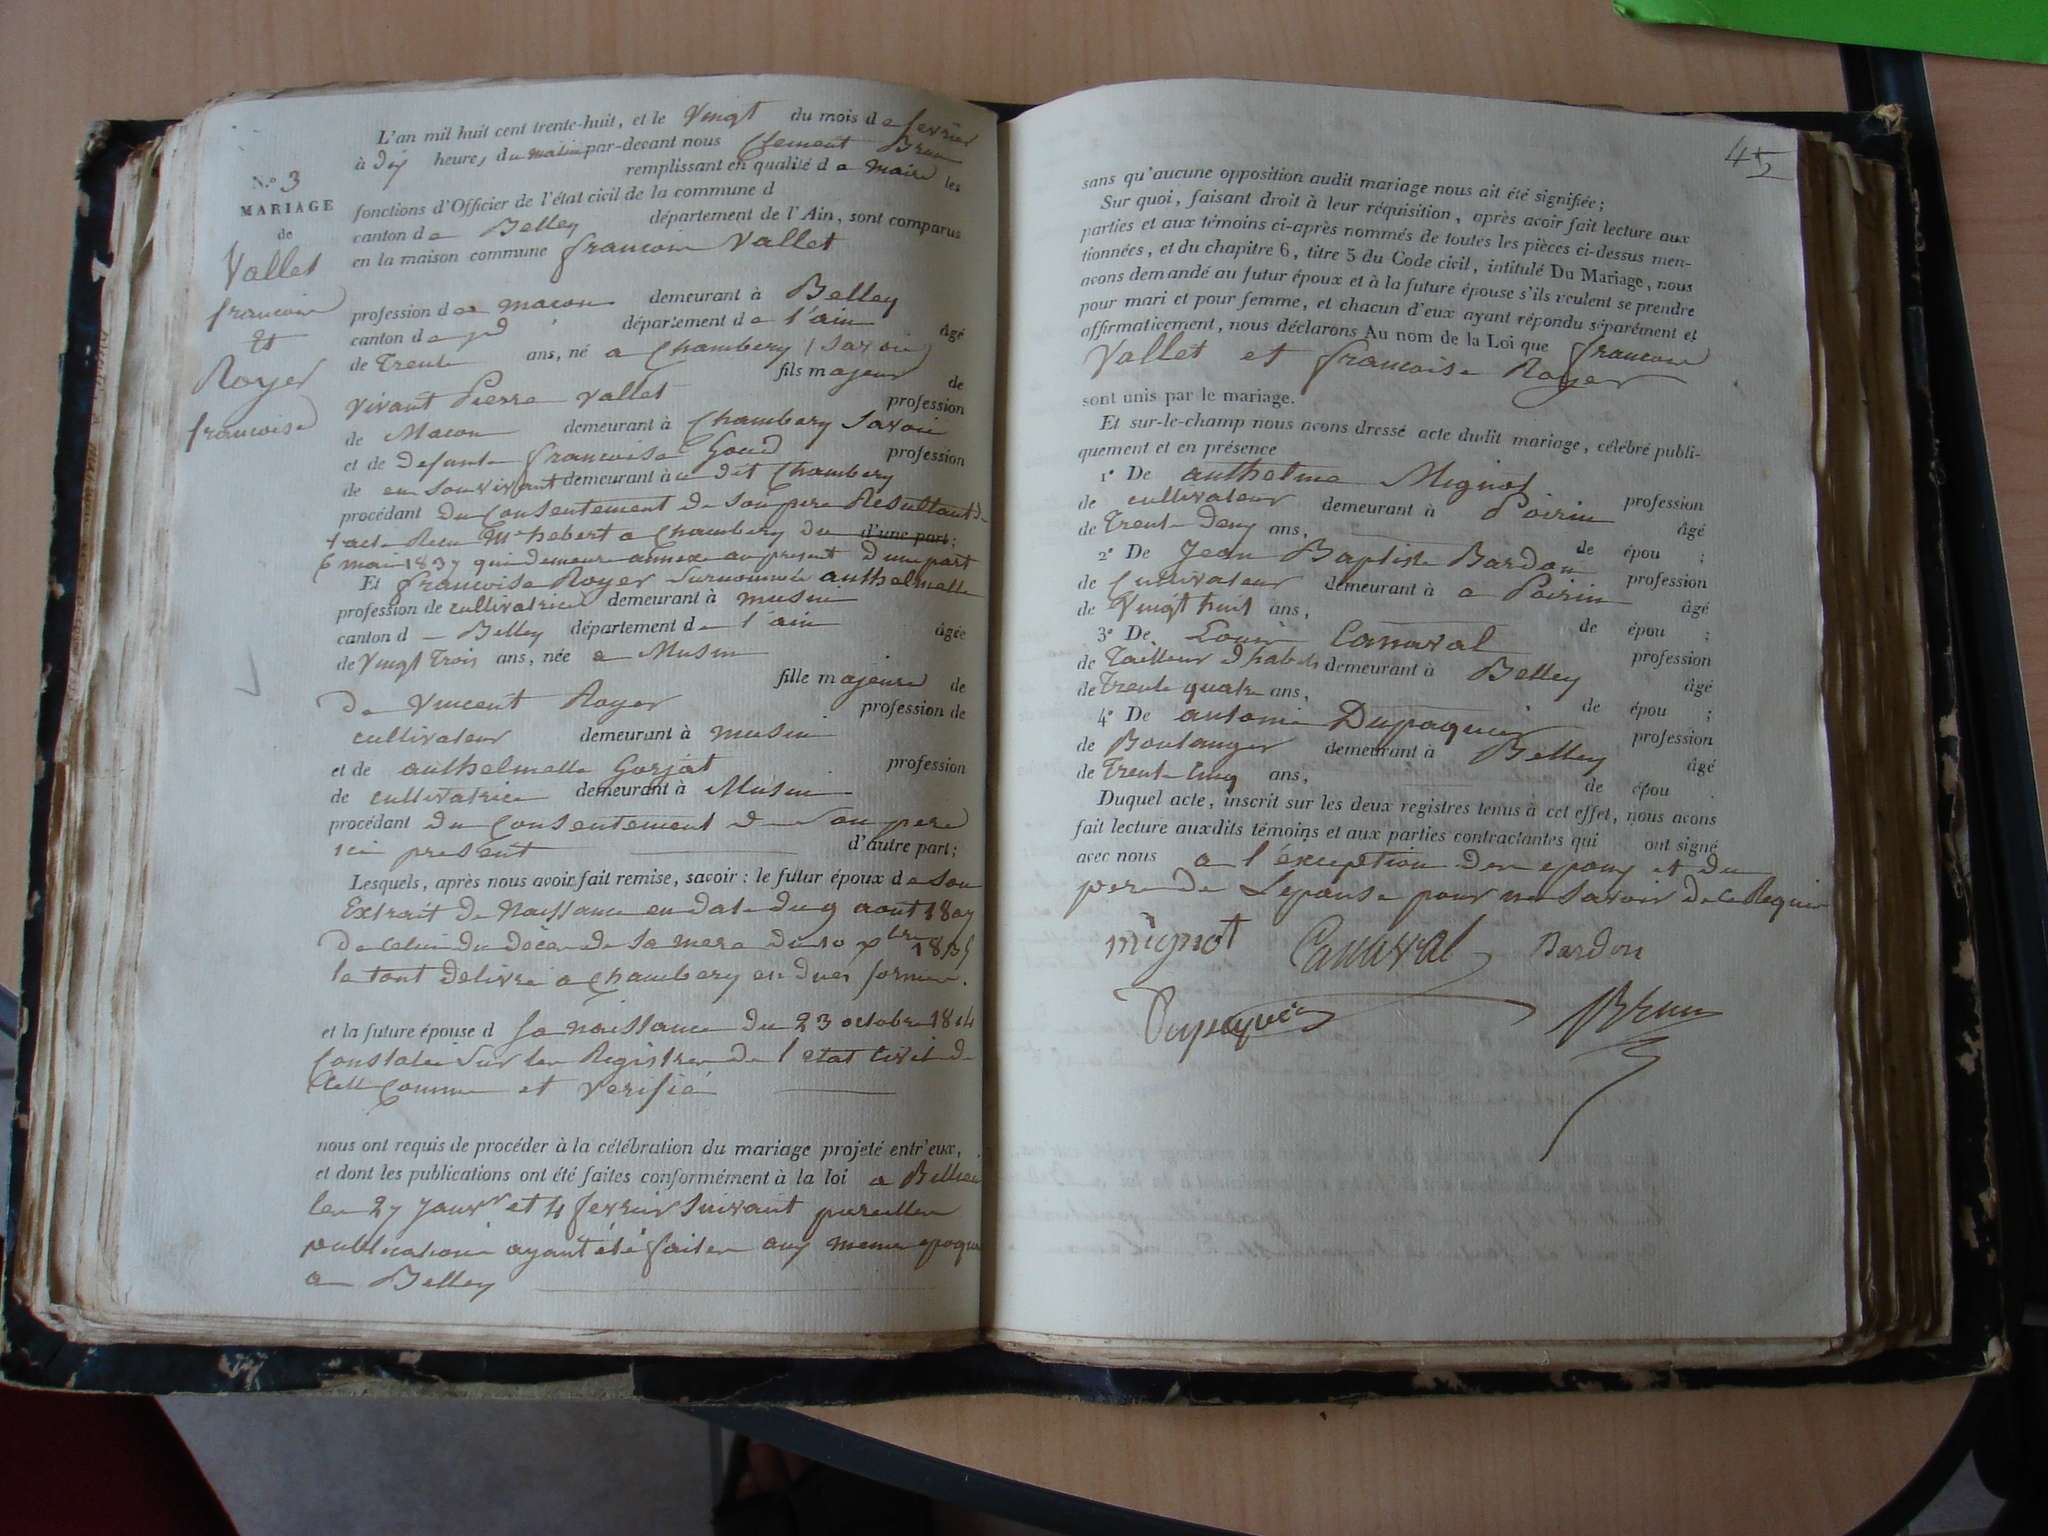 N.º 3
MARIAGE
de
Vallet
francois
Et
Royer
francoise
L'an mil huit cent trente-huit, et le Vingt du mois de fevrier
à dix heures du matin par-devant nous Clement Brun
remplissant en qualité de maire les
fonctions d'Officier de l'état civil de la commune d
canton de Belley département de l'Ain, sont comparus
en la maison commune francois Vallet
profession de macon demeurant à Belley
canton de jd département de l'ain âgé
de Trente ans, né a Chambery (Savoie)
fils majeur de
vivant Pierre Vallet profession
de Macon demeurant à Chambery Savoie
et de defunte francoise Goud profession
de en son vivant demeurant à u dit Chambery
procédant du Consentement de son pere Resultant de
l'acte Recu Mre hebert a Chambery du d'une part;
6 mai 1837 qui demeure annexe au present d'une part
Et francoise Royer Surnommée anthelmette
profession de cultivatrice demeurant à musin
canton d Belley département de l'ain âgée
de Vingt Trois ans, née a Musin
fille majeure de
De Vincent Royer profession de
cultivateur demeurant à musin
et de anthelmette Gorjat profession
de cultivatrice demeurant à Musin
procédant du Consentement de Son pere
ici present d'autre part;
Lesquels, après nous avoir fait remise, savoir: le futur époux de son
Extrait de Naissance en date du 9 aout 1807
De celui du décès de sa mere du 10 xbre 1835
le tout délivré a Chambery en dues formes.
et la future épouse d sa naissance du 23 octobre 1814
Constatée sur les Registres de l'etat civil de
cette Commune et verifié
nous ont requis de procéder à la célébration du mariage projeté entr'eux,
et dont les publications ont été faites conformément à la loi a
les 27 janvr et 4 fevrier suivant pareilles
publications ayant été faites aux memes epoques
a Belley
45
sans qu'aucune opposition audit mariage nous ait été signifiée;
Sur quoi, faisant droit à leur réquisition, après avoir fait lecture aux
parties et aux témoins ci-après nommés de toutes les pièces ci-dessus men-
tionnées, et du chapitre 6, titre 5 du Code civil, intitulé Du Mariage, nous
avons demandé au futur époux et à la future épouse s'ils veulent se prendre
pour mari et pour femme, et chacun d'eux ayant répondu séparément et
affirmativement, nous déclarons Au nom de la Loi que francois
Vallet et francoise Royer
sont unis par le mariage.
Et sur-le-champ nous avons dressé acte dudit mariage, célébré publi-
quement et en présence
1º De anthelme Mignot profession
de cultivateur demeurant à Poirin âgé
de Trente deux ans, de épou ;
2º De Jean Baptiste Bardon profession
de Cultivateur demeurant à a Poirin âgé
de Vingt huit ans, de épou ;
3º De Louis Canaval profession
de Tailleur d'habits demeurant à Belley âgé
de Trente quatre ans, de épou ;
4º De antoine Dupaquier profession
de Boulanger demeurant à Belley âgé
de Trente Cinq ans, de épou .
Duquel acte, inscrit sur les deux registres tenus à cet effet, nous avons
fait lecture auxdits témoins et aux parties contractantes qui ont signé
avec nous a l'éxception des epoux et du
pere de L'epouse pour ne savoir de ce Requis
mignot Canaval Bardon
Dupaquier Brun